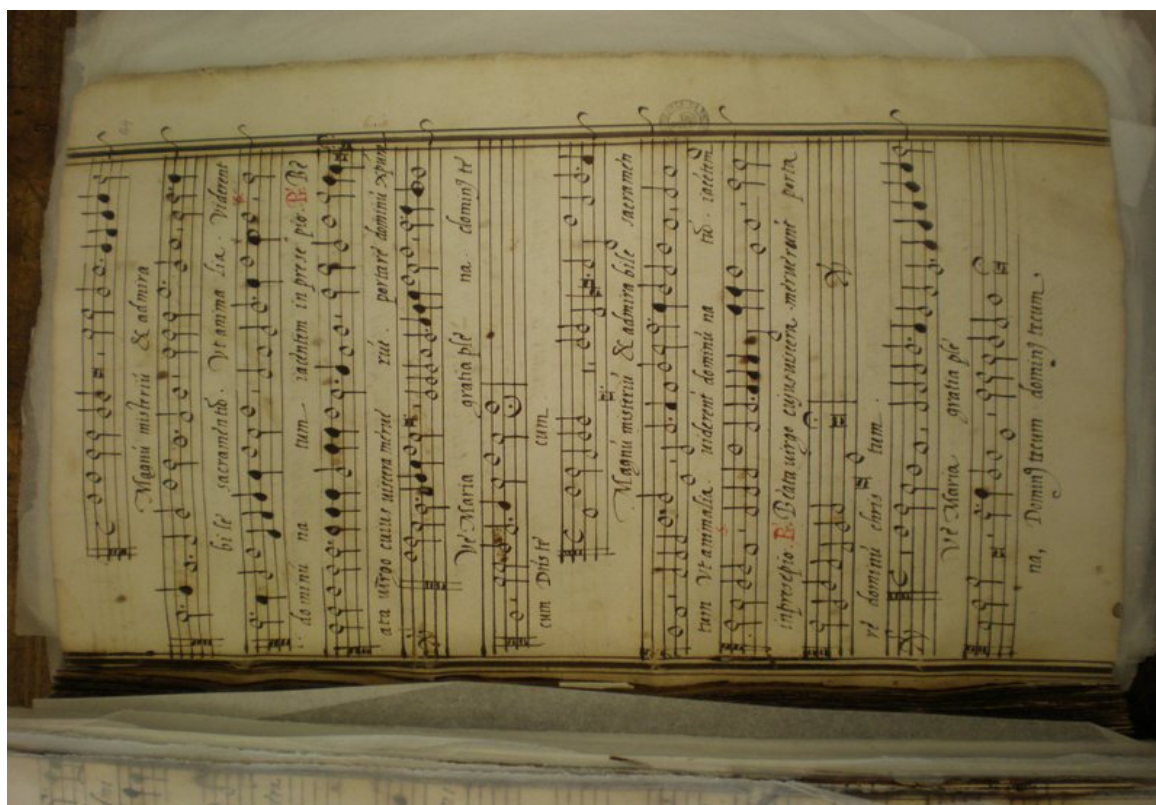 Magnū misteriū & admira
bile sacramentū. Vt anima lia. Viderent
dominū na tum. iacentem in prese pio. ℟. Be
ata uirgo cuius uiscera meruē rūt. portarē dominū xpūm.
Vē Maria gratia plē na. dominꝯ tē
cum Dn̄s tē cum
Magnū misteriū & admira bile sacramen
tum Vt ammalia. uiderent dominū na tū. iacētem
in presepio. ℟. Beata uirgo cujus uiscera. meruērunt porta
rē dominū chris tum.
Vē Maria gratia plē
na, Dominꝯ tecum dominꝯ tecum